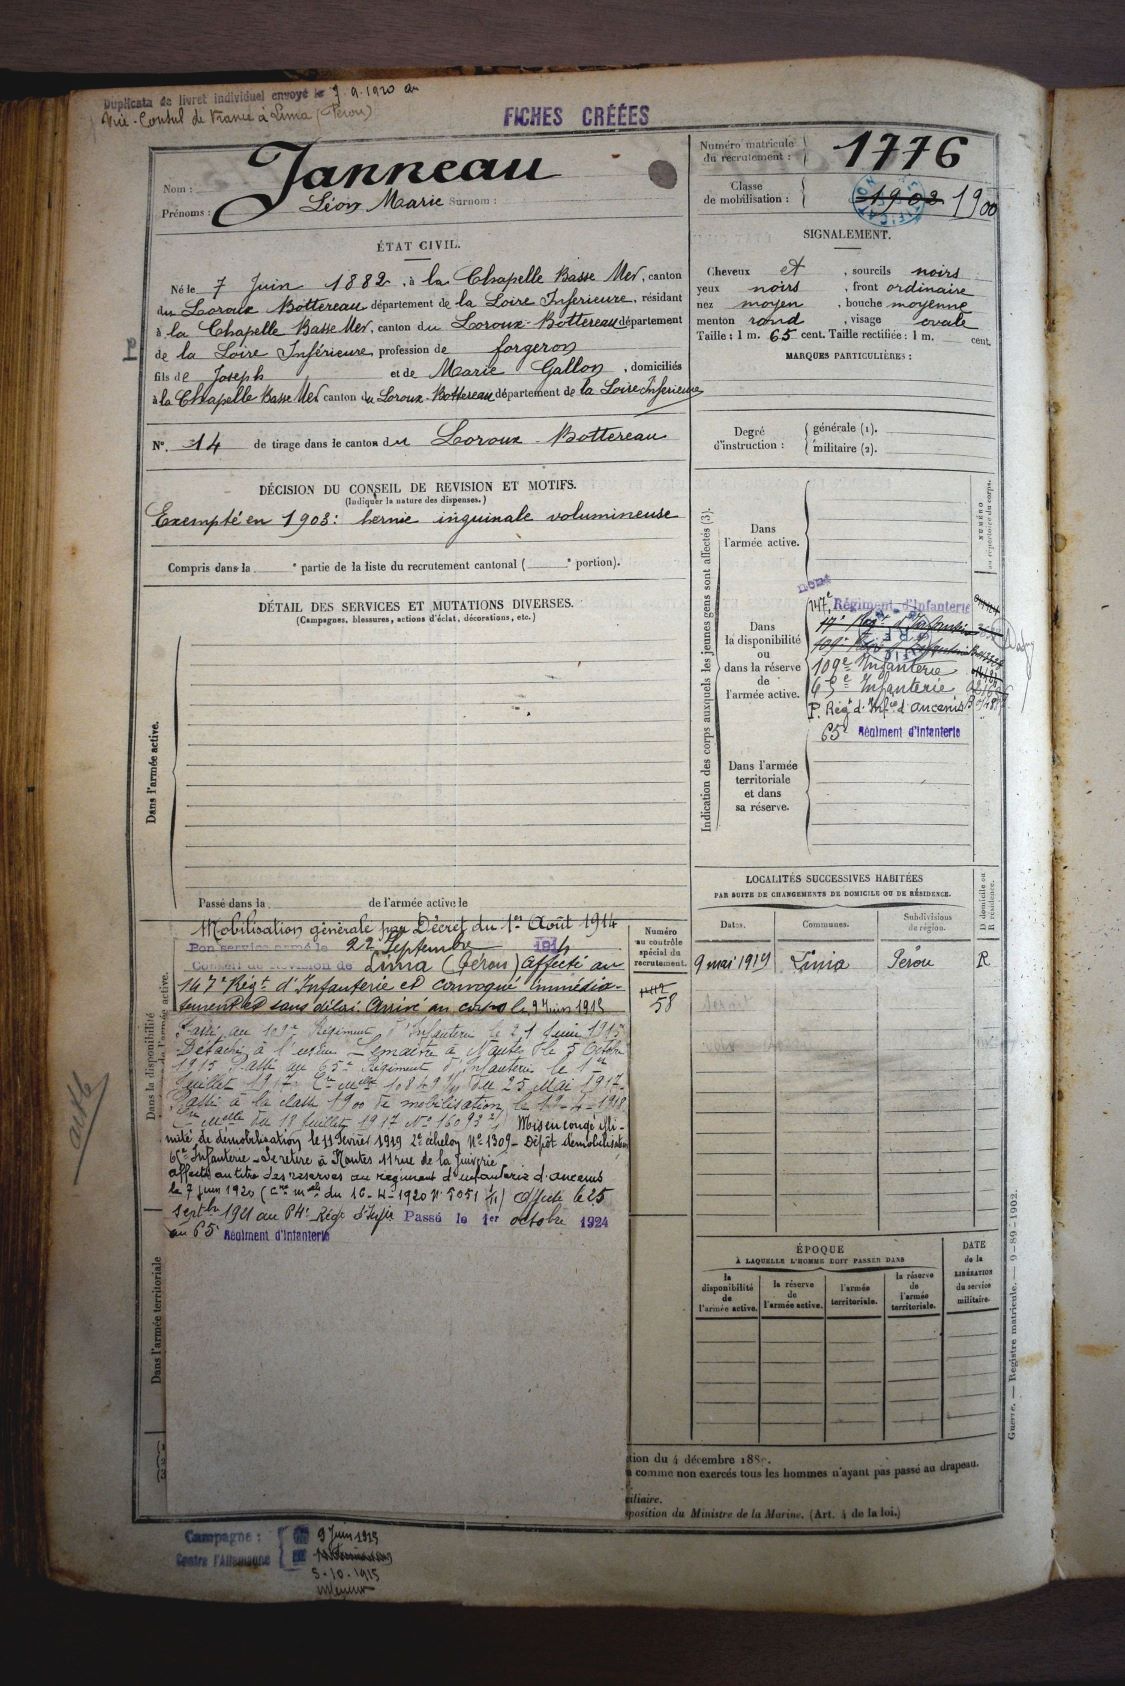 Duplicata de livret individuel envoyé le 7.9.1920 au
Vice-Consul de France à Lima (Pérou)
FICHES CRÉÉES
Nom : Janneau
Prénoms : Léon Marie Surnom :
Numéro matricule du recrutement : 1776
Classe de mobilisation : 1902 1900
ÉTAT CIVIL.
Né le 7 Juin 1882, à la Chapelle Basse Mer, canton
du Loroux Bottereau département de la Loire Inférieure, résidant
à la Chapelle Basse Mer, canton du Loroux-Bottereau département
de la Loire Inférieure profession de forgeron
fils de Joseph et de Marie Gallon, domiciliés
à la Chapelle Basse Mer canton du Loroux-Bottereau département de la Loire Inférieure
N°. 14 de tirage dans le canton du Loroux-Bottereau
SIGNALEMENT.
Cheveux et, sourcils noirs
yeux noirs, front ordinaire
nez moyen, bouche moyenne
menton rond, visage ovale
Taille : 1 m. 65 cent. Taille rectifiée : 1 m. cent.
MARQUES PARTICULIÈRES :
Degré d'instruction :
générale (1).
militaire (2).
DÉCISION DU CONSEIL DE REVISION ET MOTIFS.
(Indiquer la nature des dispenses.)
Exempté en 1903 : hernie inguinale volumineuse
Compris dans la e partie de la liste du recrutement cantonal ( e portion).
DÉTAIL DES SERVICES ET MUTATIONS DIVERSES.
(Campagnes, blessures, actions d'éclat, décorations, etc.)
Dans l'armée active.
Passé dans la de l'armée active le
Indication des corps auxquels les jeunes gens sont affectés (3).
NUMÉRO au répertoire du corps.
Dans l'armée active.
Dans la disponibilité ou dans la réserve de l'armée active.
147e Régiment d'Infanterie
109e Infanterie
65e Infanterie
P. Régt d'Infie d'Ancenis
65e Régiment d'Infanterie
Dans l'armée territoriale et dans sa réserve.
Dans la disponibilité
de l'armée active.
Mobilisation générale par Décret du 1er Août 1914
Bon service armé le 22 Septembre 1914
Conseil de révision de Lima (Pérou) Affecté au
147e Régt d'Infanterie et convoqué immédia-
tement et sans délai. Arrivé au corps le 9 Juin 1915
Passé au 109e Régiment d'Infanterie le 21 Juin 1915
Détaché à l'usine Lemaître à Nantes le 5 Octobre
1915 Passé au 65e Régiment d'Infanterie le 1er
Juillet 1917. Cre Melle 10849 du 25 Mai 1917.
Passé à la classe 1900 de mobilisation le 19-4-1918
Cre Melle du 18 Juillet 1917 No 16093 Mis en congé illi-
mité de démobilisation le 11 Février 1919 2e échelon No 1309 - Dépôt démobilisateur
65e Infanterie - Se retire à Nantes 11 rue de la Juiverie
affecté au titre des réserves au régiment d'infanterie d'Ancenis
le 7 juin 1920 (Cre melle du 16-4-1920 No 5051) Affecté le 25
Septbre 1921 au 64e Régt d'Infie Passé le 1er octobre 1924
au 65e Régiment d'Infanterie
Numéro au contrôle spécial du recrutement.
58
Dans l'armée territoriale
LOCALITÉS SUCCESSIVES HABITÉES
PAR SUITE DE CHANGEMENTS DE DOMICILE OU DE RÉSIDENCE.
Dates. Communes. Subdivisions de région. D domicile ou R résidence.
9 mai 1919 Lima Pérou R
ÉPOQUE
À LAQUELLE L'HOMME DOIT PASSER DANS
la disponibilité de l'armée active.
la réserve de l'armée active.
l'armée territoriale.
la réserve de l'armée territoriale.
DATE de la LIBÉRATION du service militaire.
Guerre. — Registre matricule. — 9-89-1902.
tion du 4 décembre 188
comme non exercés tous les hommes n'ayant pas passé au drapeau.
iliaire.
position du Ministre de la Marine. (Art. 4 de la loi.)
Campagne :
Contre l'Allemagne
9 Juin 1915
5-10-1915